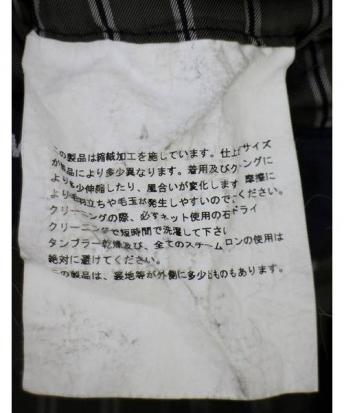 の製品は縮絨加工を施しています。仕上サイズ
が製品により多少異なります。着用及びクーングに
より多少伸縮したり、風合いが変化します 摩擦に
より毛羽立ちや毛玉が発生しやすいので、ください。
クリーニングの際、必ずネット使用の石ドライ
クリーニングで短時間で洗濯して下さい
タンブラー乾燥及び、全てのスチームロンの使用は
絶対に避けてください。
の製品は、裏地等が外側に多少ものもあります。